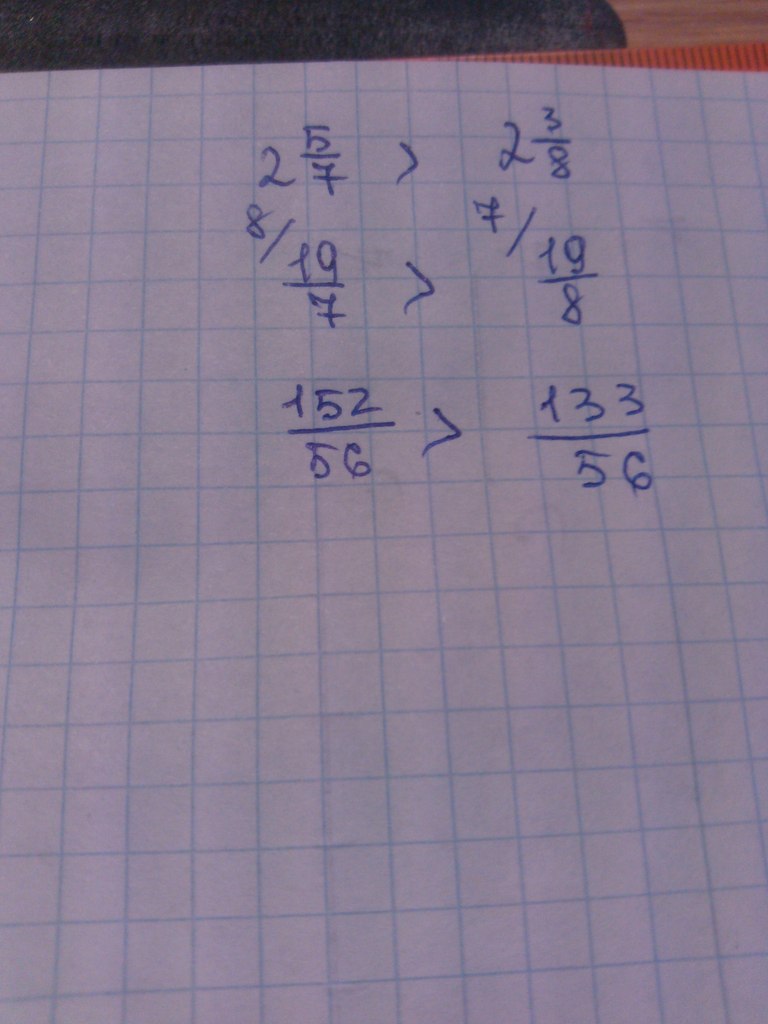 2 5/7 > 2 3/8
8/ 19/7 > 7/ 19/8
152/56 > 133/56